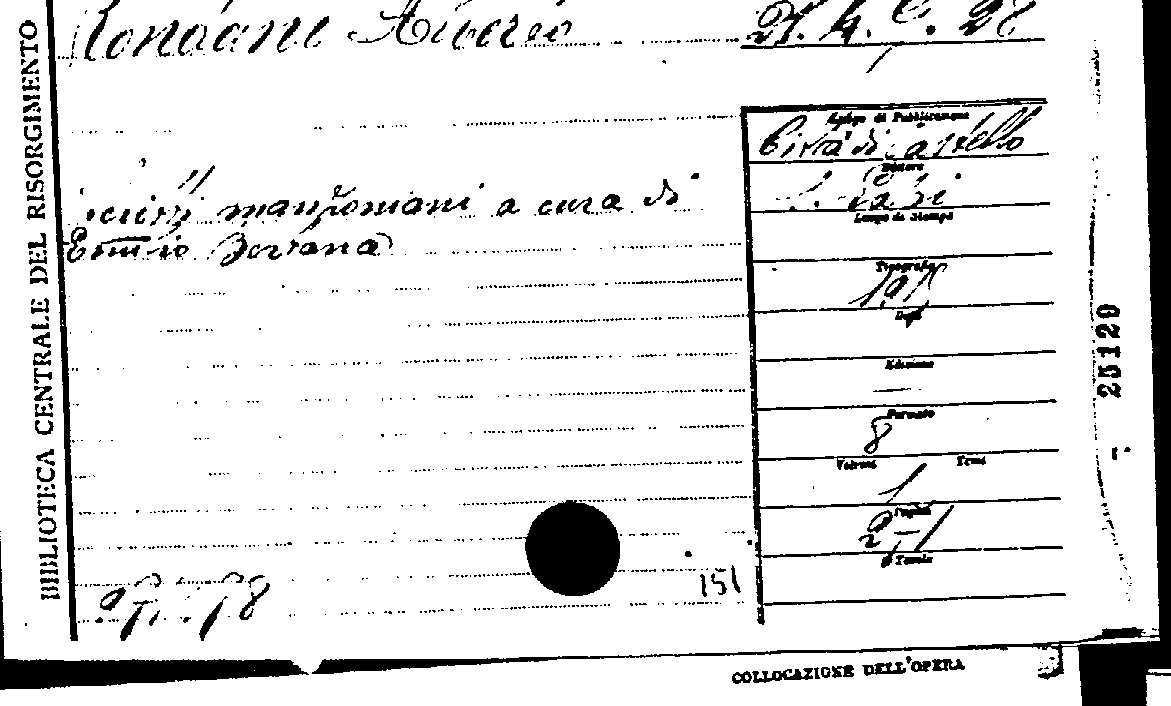 BIBLIOTECA CENTRALE DEL RISORGIMENTO
Rondani Alberto
21. 4. C. 28
Scritti manzoniani a cura di
Emilio Bertana
Luogo di Pubblicazione
Città di Castello
Editore
S. Lapi
Luogo di Stampa
Tipografia
1915
Dopi
Edizione
—
Formato
8
Volumi Tomi
1
Pagine
Tavole
151
25129
COLLOCAZIONE DELL'OPERA